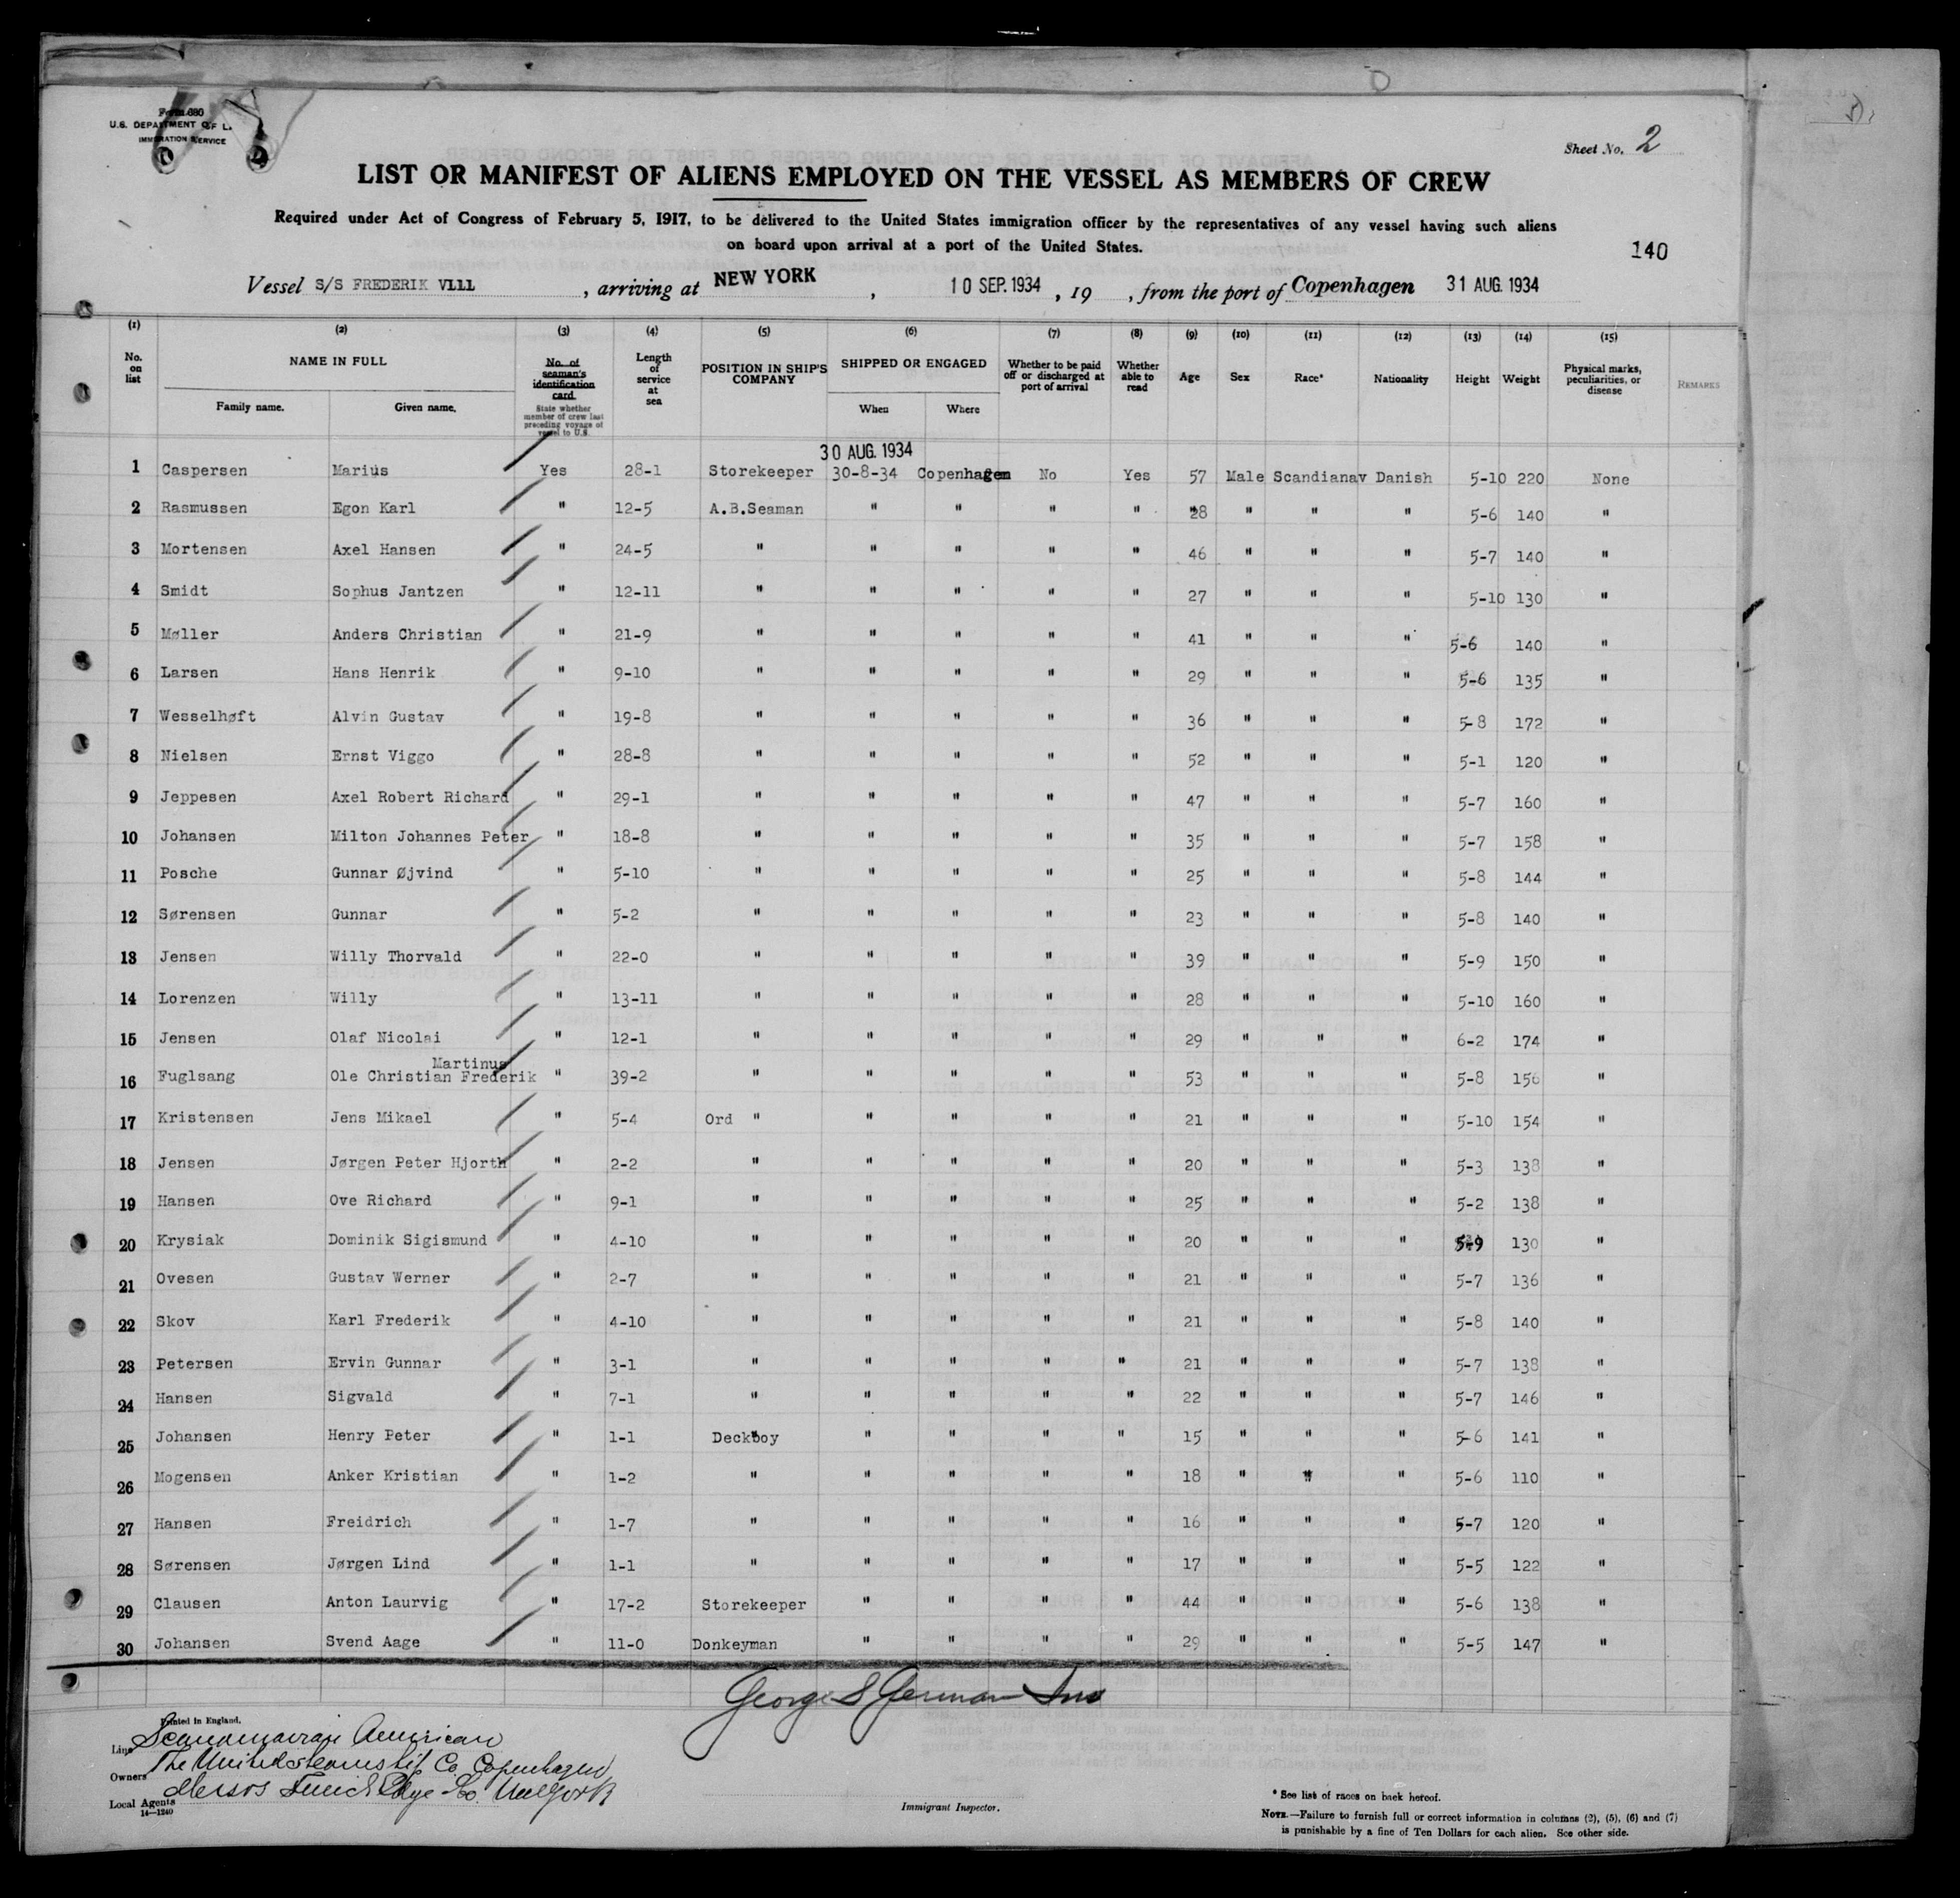 Form 680
U.S. DEPARTMENT OF L.
IMMIGRATION SERVICE
Sheet No. 2
LIST OR MANIFEST OF ALIENS EMPLOYED ON THE VESSEL AS MEMBERS OF CREW
Required under Act of Congress of February 5, 1917, to be delivered to the United States immigration officer by the representatives of any vessel having such aliens
on board upon arrival at a port of the United States.
140
Vessel S/S FREDERIK VLLL , arriving at NEW YORK , 10 SEP. 1934 , 19 , from the port of Copenhagen 31 AUG. 1934
(1) (2) (3) (4) (5) (6) (7) (8) (9) (10) (11) (12) (13) (14) (15)
No. on list NAME IN FULL Family name. Given name. No. of seaman's identification card. State whether member of crew last preceding voyage of vessel to U.S. Length of service at sea POSITION IN SHIP'S COMPANY SHIPPED OR ENGAGED When Where Whether to be paid off or discharged at port of arrival Whether able to read Age Sex Race* Nationality Height Weight Physical marks, peculiarities, or disease REMARKS
30 AUG. 1934
1 Caspersen Marius Yes 28-1 Storekeeper 30-8-34 Copenhagen No Yes 57 Male Scandianav Danish 5-10 220 None
2 Rasmussen Egon Karl " 12-5 A.B.Seaman " " " " 28 " " " 5-6 140 "
3 Mortensen Axel Hansen " 24-5 " " " " " 46 " " " 5-7 140 "
4 Smidt Sophus Jantzen " 12-11 " " " " " 27 " " " 5-10 130 "
5 Møller Anders Christian " 21-9 " " " " " 41 " " " 5-6 140 "
6 Larsen Hans Henrik " 9-10 " " " " " 29 " " " 5-6 135 "
7 Wesselhøft Alvin Gustav " 19-8 " " " " " 36 " " " 5-8 172 "
8 Nielsen Ernst Viggo " 28-8 " " " " " 52 " " " 5-1 120 "
9 Jeppesen Axel Robert Richard " 29-1 " " " " " 47 " " " 5-7 160 "
10 Johansen Milton Johannes Peter " 18-8 " " " " " 35 " " " 5-7 158 "
11 Posche Gunnar Øjvind " 5-10 " " " " " 25 " " " 5-8 144 "
12 Sørensen Gunnar " 5-2 " " " " " 23 " " " 5-8 140 "
13 Jensen Willy Thorvald " 22-0 " " " " " 39 " " " 5-9 150 "
14 Lorenzen Willy " 13-11 " " " " " 28 " " " 5-10 160 "
15 Jensen Olaf Nicolai " 12-1 " " " " " 29 " " " 6-2 174 "
Martinus
16 Fuglsang Ole Christian Frederik " 39-2 " " " " " 53 " " " 5-8 156 "
17 Kristensen Jens Mikael " 5-4 Ord " " " " " 21 " " " 5-10 154 "
18 Jensen Jørgen Peter Hjorth " 2-2 " " " " " 20 " " " 5-3 138 "
19 Hansen Ove Richard " 9-1 " " " " " 25 " " " 5-2 138 "
20 Krysiak Dominik Sigismund " 4-10 " " " " " 20 " " " 5-9 130 "
21 Ovesen Gustav Werner " 2-7 " " " " " 21 " " " 5-7 136 "
22 Skov Karl Frederik " 4-10 " " " " " 21 " " " 5-8 140 "
23 Petersen Ervin Gunnar " 3-1 " " " " " 21 " " " 5-7 138 "
24 Hansen Sigvald " 7-1 " " " " " 22 " " " 5-7 146 "
25 Johansen Henry Peter " 1-1 Deckboy " " " " 15 " " " 5-6 141 "
26 Mogensen Anker Kristian " 1-2 " " " " " 18 " " " 5-6 110 "
27 Hansen Freidrich " 1-7 " " " " " 16 " " " 5-7 120 "
28 Sørensen Jørgen Lind " 1-1 " " " " " 17 " " " 5-5 122 "
29 Clausen Anton Laurvig " 17-2 Storekeeper " " " " 44 " " " 5-6 138 "
30 Johansen Svend Aage " 11-0 Donkeyman " " " " 29 " " " 5-5 147 "
George S German Ins
Printed in England.
Line Scandinavian American
Owners The United steamship Co. Copenhagen
Local Agents Messrs Funch Edye & Co. New York
14-1240
Immigrant Inspector.
* See list of races on back hereof.
NOTE.—Failure to furnish full or correct information in columns (2), (5), (6) and (7)
is punishable by a fine of Ten Dollars for each alien. See other side.